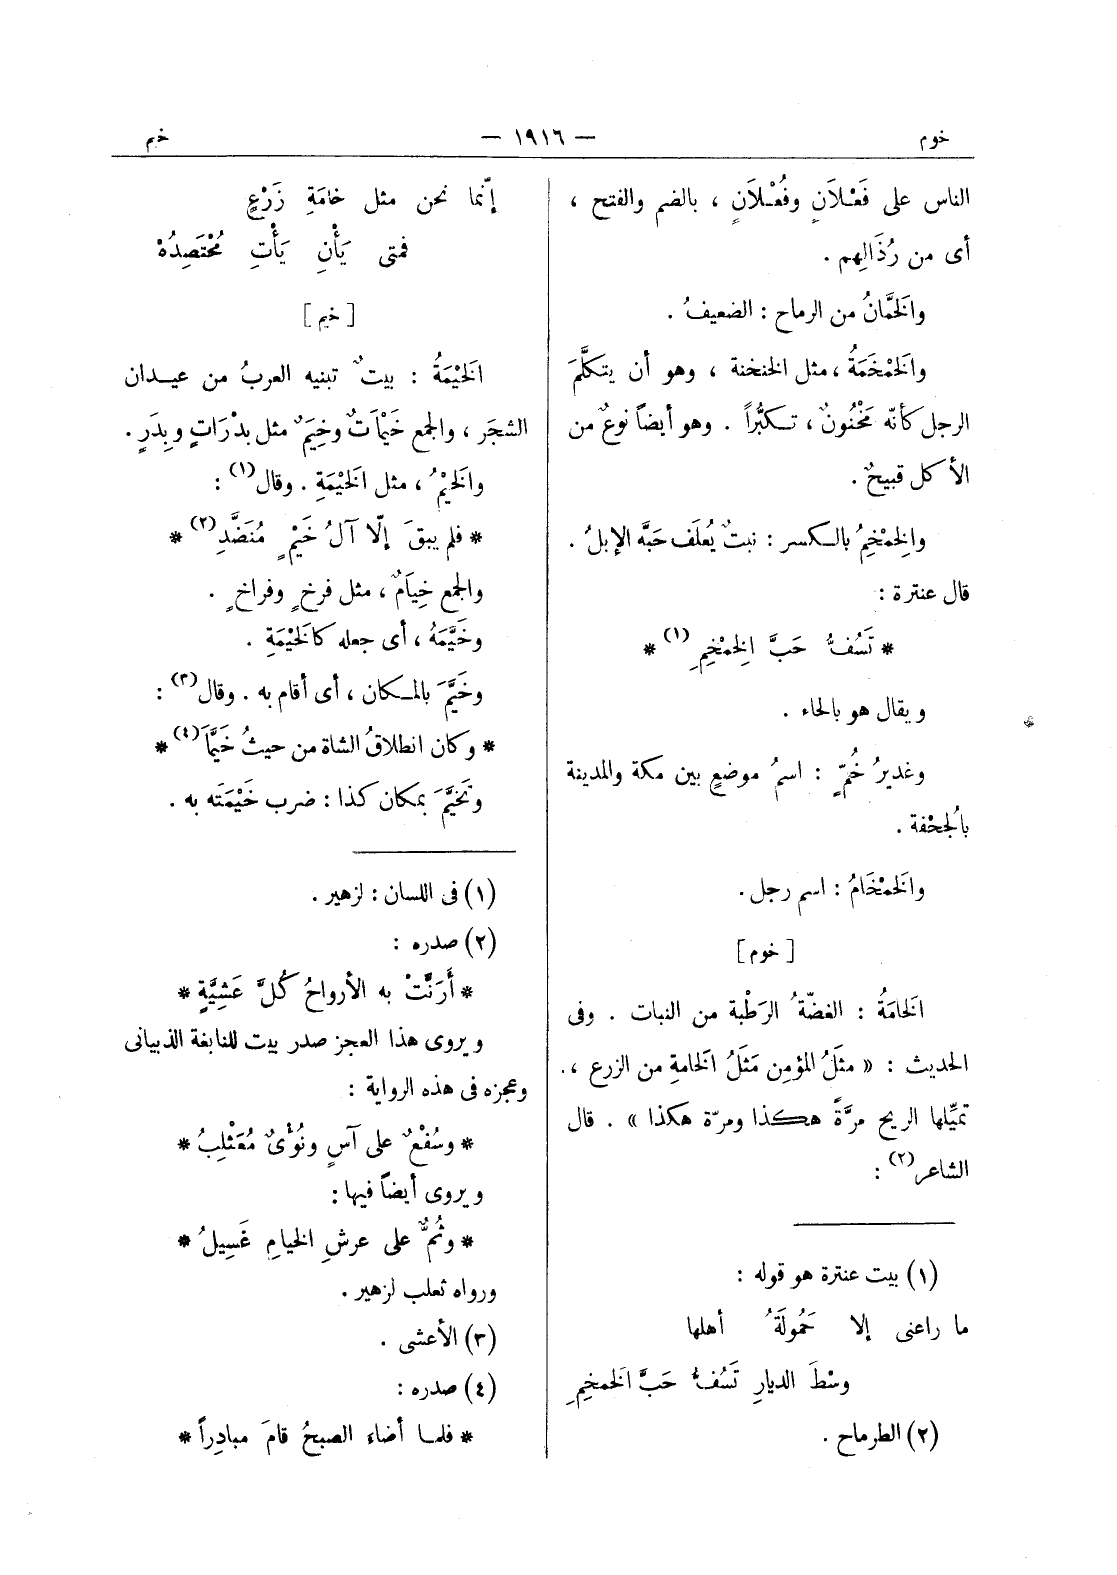 خوم — ١٩١٦ — خيم
الناس على فَعْلاَنٍ وفُعْلاَنٍ ، بالضم والفتح ،
أى من رُذَالِهم .
والَخَّمانُ من الرماح : الضعيفُ .
والَخمْخَمَةُ ، مثل الخنخنة ، وهو أن يتكلَّمَ
الرجل كأنّه مَخْنُونٌ ، تكبُّراً . وهو أيضاً نوعٌ من
الأكل قبيحٌ .
والِخمْخِمُ بالكسر : نبتٌ يُعلَف حَبَّه الإبلُ .
قال عنترة :
* تَسُفُّ حَبَّ الِخمْخِمِ (١) *
ويقال هو بالحاء .
وغديرُ خُمٍّ : اسمُ موضعٍ بين مكة والمدينة
بالُجحْفة .
والَخمْخَامُ : اسم رجل .
[ خوم ]
الَخامَةُ : الغضّةُ الرَطْبة من النبات . وفى
الحديث : « مثَلُ المؤمِن مَثَلُ الَخامةِ من الزرع ،
تميِّلها الريح مرَّةً هكذا ومرّة هكذا » . قال
الشاعر (٢) :
(١) بيت عنترة هو قوله :
ما راعنى إلا حَمُولَةُ أهلها
وسْطَ الديارِ تَسُفُّ حَبَّ الَخمخِمِ
(٢) الطرماح .
إنّما نحن مثل خامَةِ زَرْعٍ
فمتى يَأْنِ يَأْتِ مُحْتَصِدُهْ
[ خيم ]
الَخيْمَةُ : بيتٌ تبنيه العربُ من عيدان
الشجَر ، والجمع خَيْمَاتٌ وخِيَمٌ مثل بدْرَاتٍ وبِدَرٍ .
والَخيْمُ ، مثل الَخيْمَةِ . وقال (١) :
* فلم يبقَ إلّا آلُ خَيْمٍ مُنَضَّدِ (٢) *
والجمع خِيَامٌ ، مثل فرخٍ وفراخٍ .
وخَيَّمَهُ ، أى جعله كالَخيْمَةِ .
وخَيَّمَ بالمكان ، أى أقام به . وقال (٣) :
* وكان انطلاقُ الشاة من حيثُ خَيَّمَا (٤) *
وتَخيَّمَ بمكان كذا : ضرب خَيْمَتَه به .
(١) فى اللسان : لزهير .
(٢) صدره :
* أَرَبَّتْ به الأرواحُ كُلَّ عَشِيَّةٍ *
ويروى هذا العجز صدر بيت للنابغة الذبيانى
وعجزه فى هذه الرواية :
* وسُفْعٌ على آسٍ ونُؤْىٌ مُعَثْلِبُ *
ويروى أيضاً فيها :
* وثُمٌّ على عرشِ الخيامِ غَسِيلُ *
ورواه ثعلب لزهير .
(٣) الأعشى .
(٤) صدره :
* فلما أضاء الصبحُ قامَ مبادِراً *